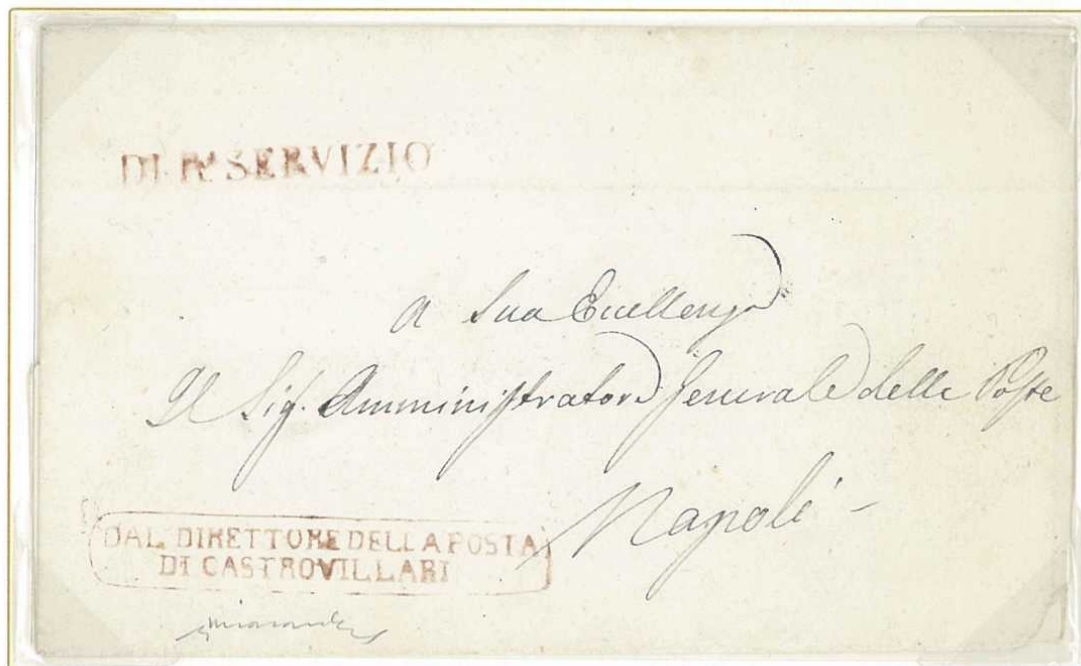 DI Rl SERVIZIO
A Sua Eccellenza
Il Sig. Amministratore Generale delle Poste
Napoli -
DAL DIRETTORE DELLA POSTA
DI CASTROVILLARI